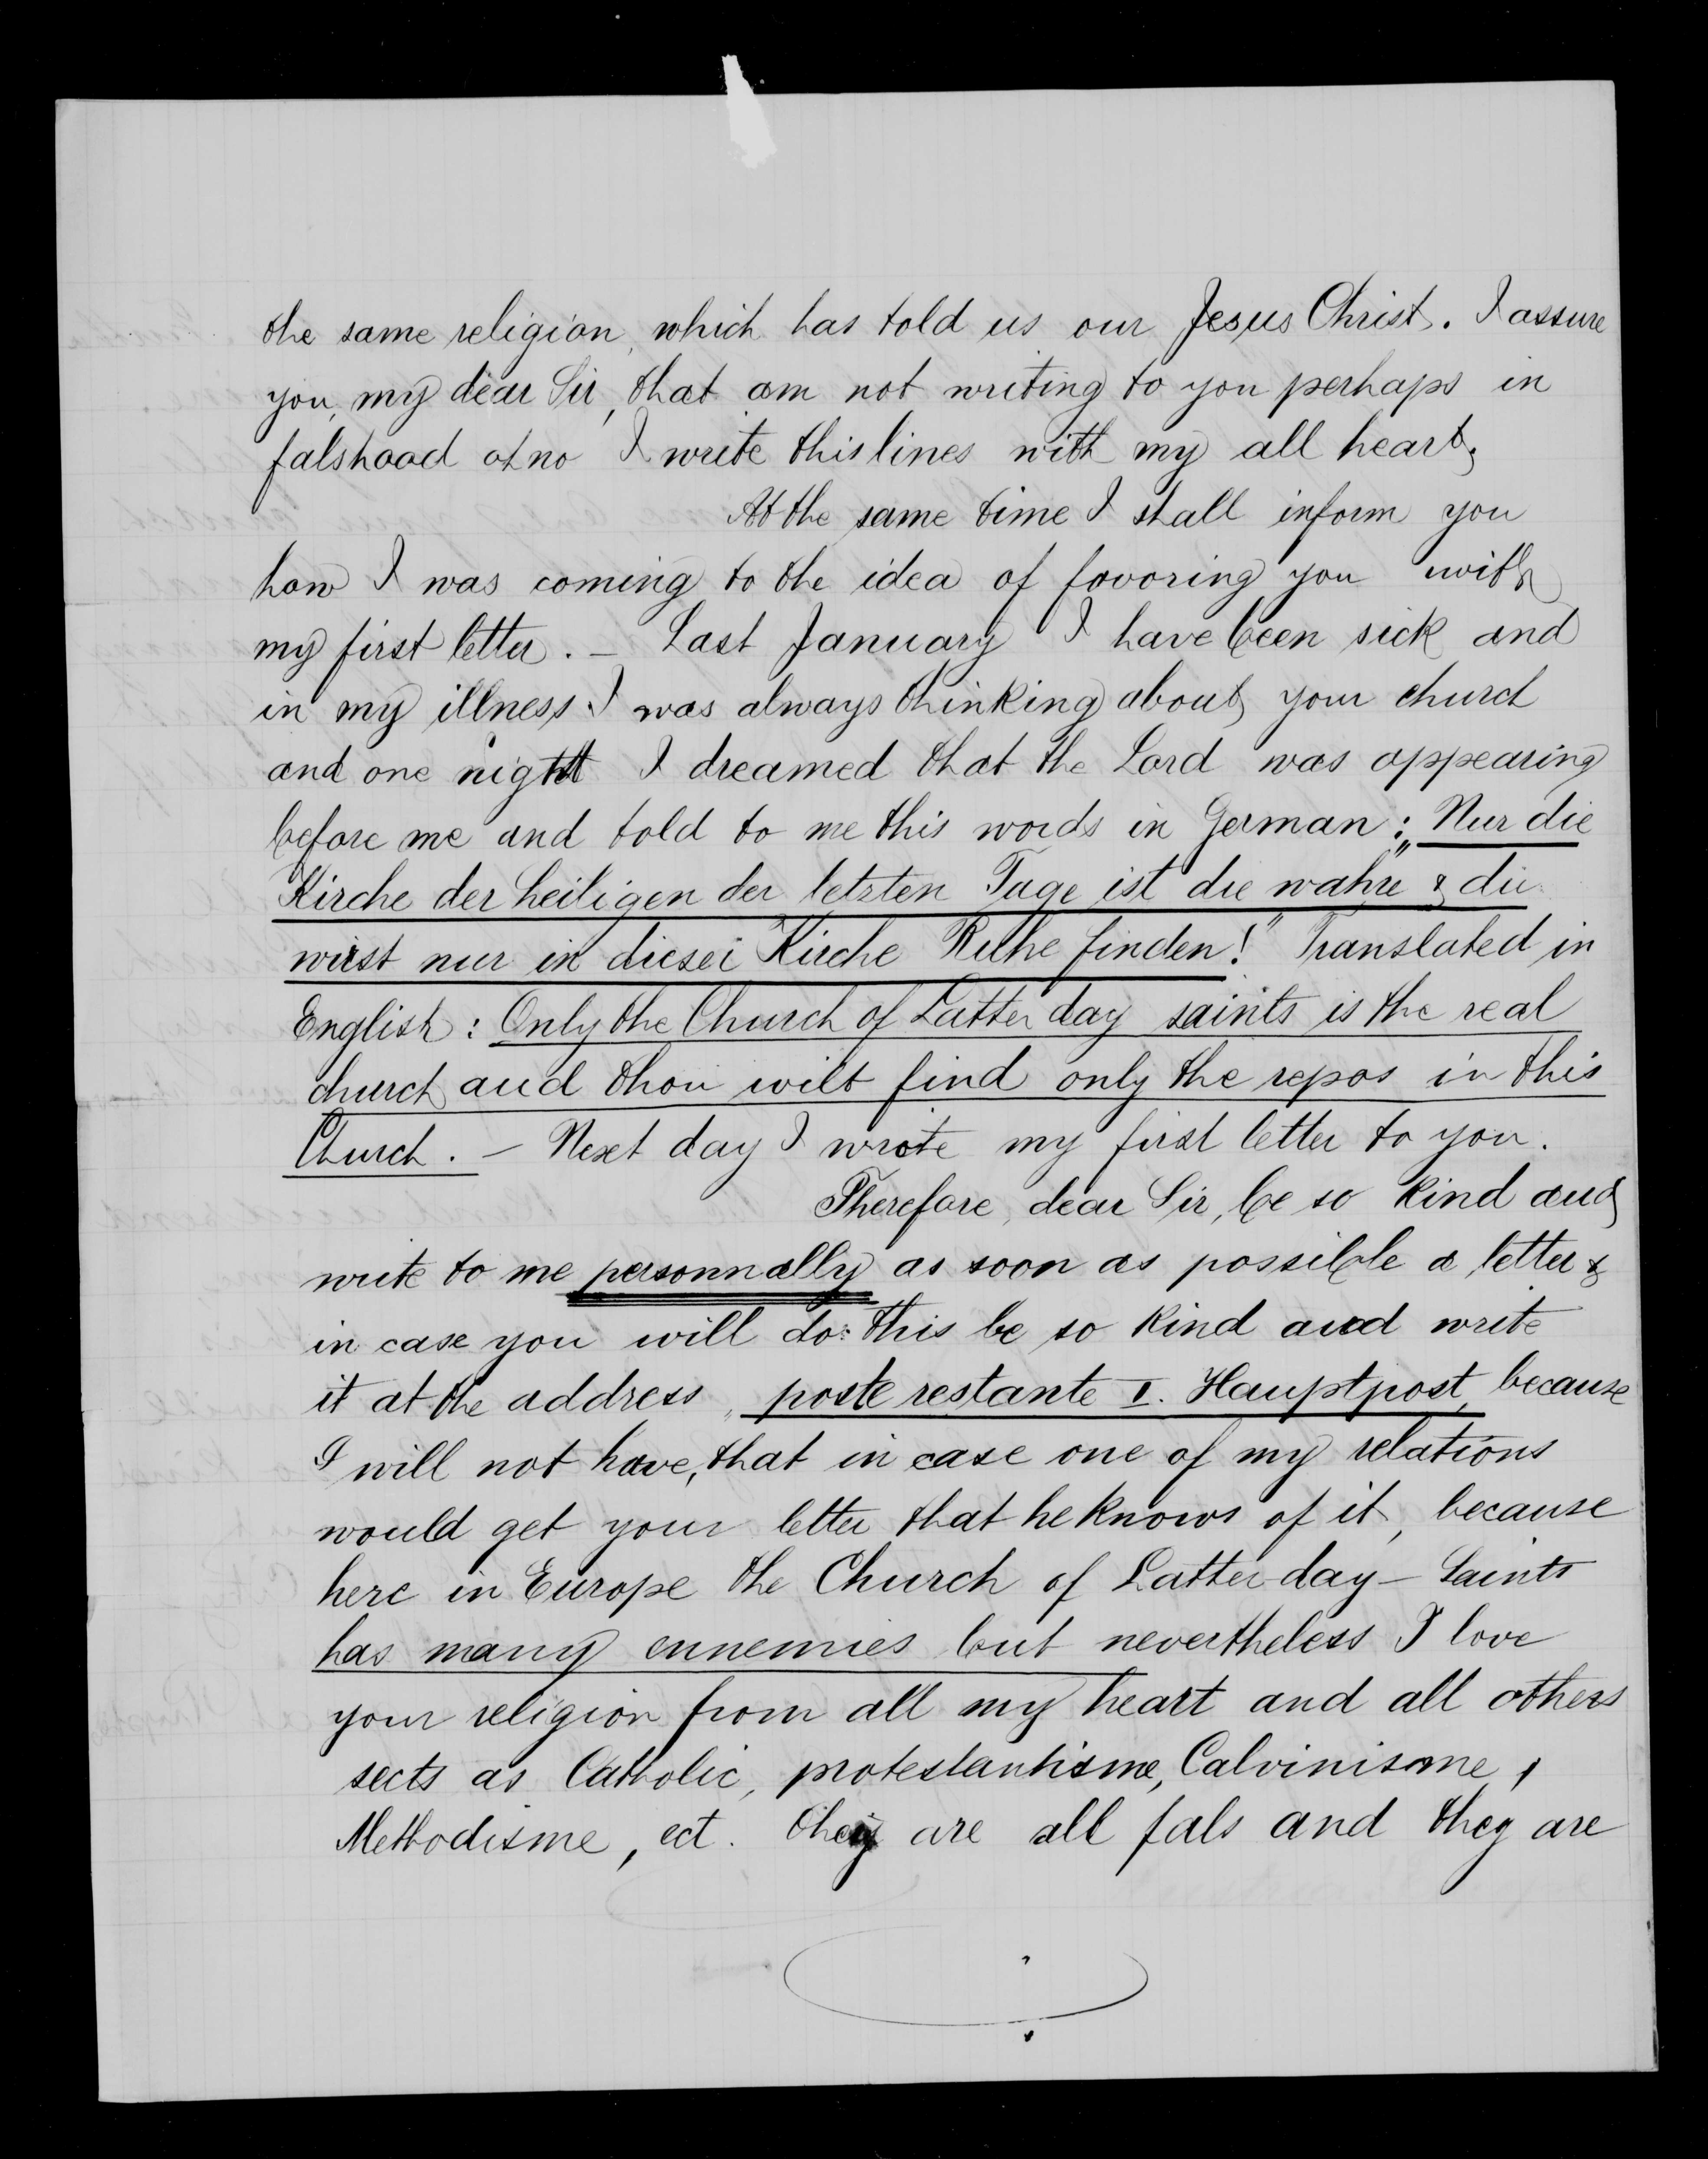 the same religion, which has told us our Jesus Christ. I assure
you, my dear Sir, that am not writing to you perhaps in
falshood oh no I write this lines with my all heart.
At the same time I shall inform you
how I was coming to the idea of favoring you with
my first letter. – Last January I have been sick and
in my illness I was always thinking about your church
and one night I dreamed that the Lord was appearing
before me and told to me this words in German: „Nur die
Kirche der heiligen der letzten Tage ist die wahre & du
wirst nur in dieser Kirche Ruhe finden!" Translated in
English: Only the Church of Latter day saints is the real
church and thou wilt find only the repos in this
Church. – Next day I wrote my first letter to you.
Therefore, dear Sir, be so kind and
write to me personnally as soon as possible a letter &
in case you will do this be so kind and write
it at the address, poste restante I. Hauptpost, because
I will not have, that in case one of my relations
would get your letter that he knows of it, because
here in Europe the Church of Latter-day-Saints
has many ennemies but nevertheless I love
your religion from all my heart and all others
sects as Catholic, protestantisme, Calvinisme,
Methodisme, ect. they are all fals and they are